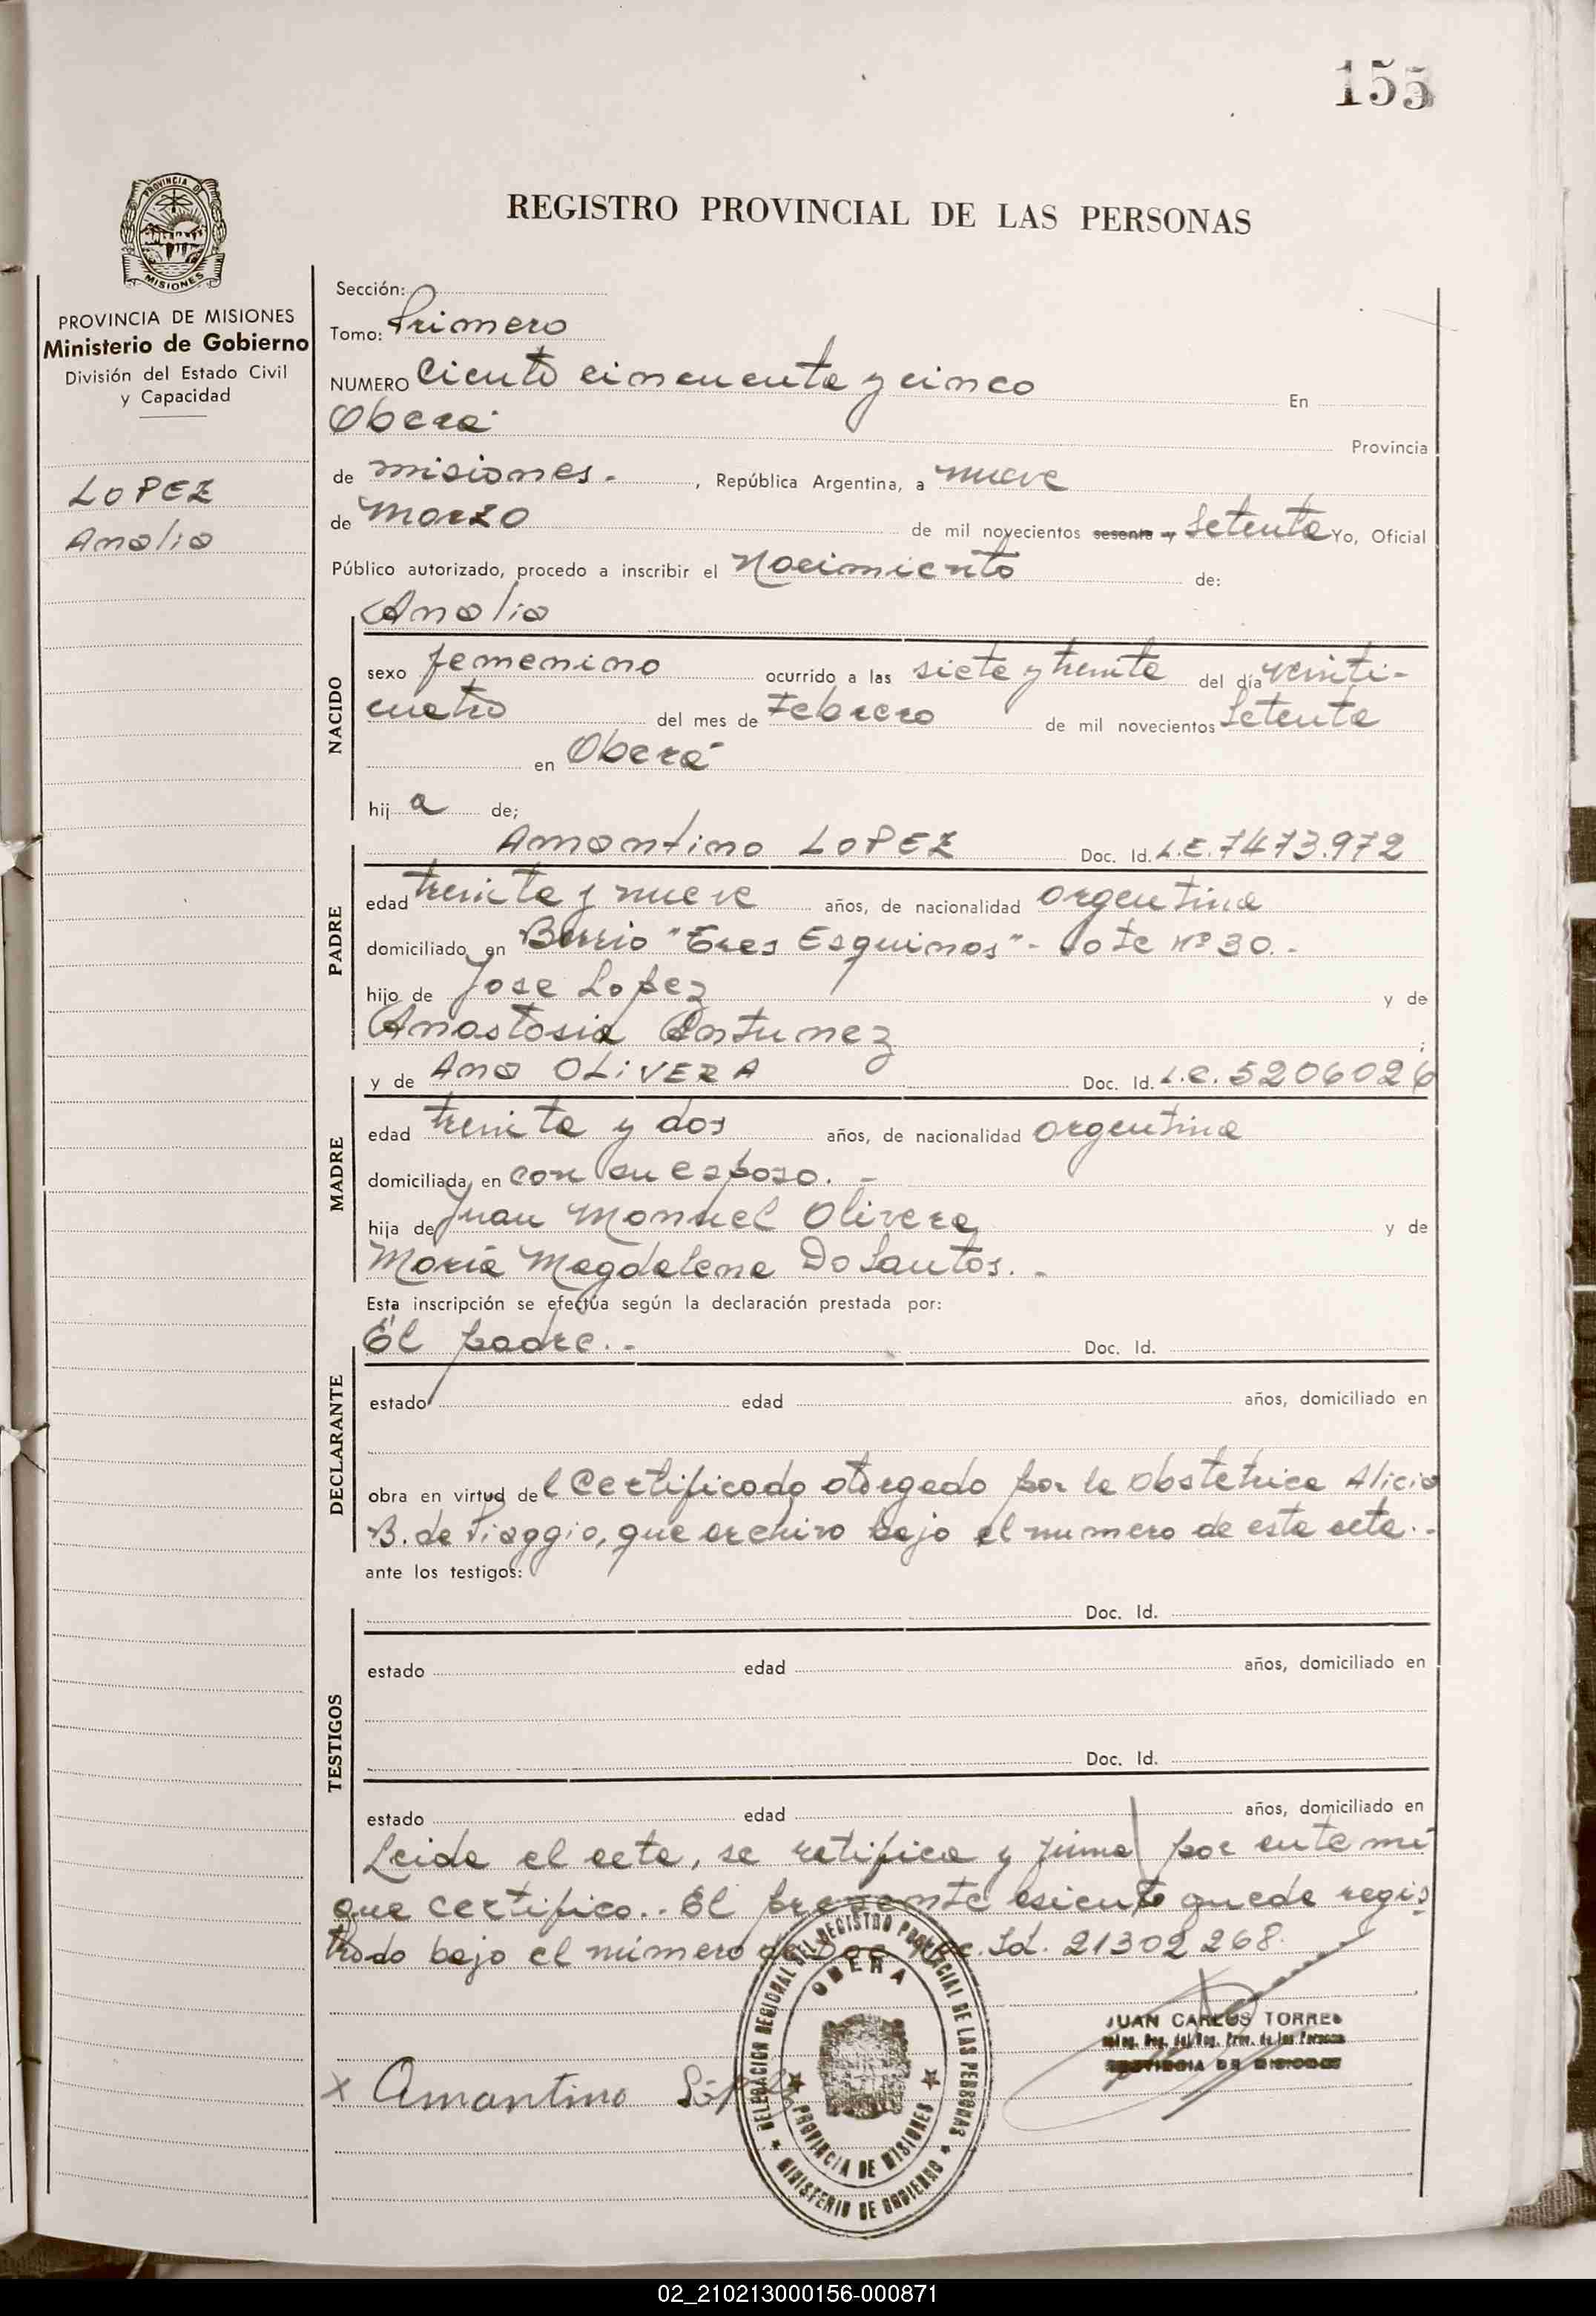 155
PROVINCIA DE
MISIONES
REGISTRO PROVINCIAL DE LAS PERSONAS
PROVINCIA DE MISIONES
Ministerio de Gobierno
División del Estado Civil
y Capacidad
LOPEZ
Analia
Sección:
Tomo: Primero
NUMERO Ciento cincuenta y cinco En
Oberá Provincia
de misiones.- , República Argentina, a nueve
de Marzo de mil novecientos sesenta y Setenta Yo, Oficial
Público autorizado, procedo a inscribir el Nacimiento de:
Analia
NACIDO
sexo femenino ocurrido a las siete y treinta del día veinti-
cuatro del mes de Febrero de mil novecientos Setenta
en Oberá
hij a de;
PADRE
Amantino LOPEZ Doc. Id. L.E. 7473.972
edad treinta y nueve años, de nacionalidad argentina
domiciliado en Barrio "Tres Esquinas"- Lote Nº 30.-
hijo de Jose Lopez y de
Anastasia Antunez ;
MADRE
y de Ana OLiVERA Doc. Id. L.C. 5206026
edad treinta y dos años, de nacionalidad argentina
domiciliada en con su esposo. -
hija de Juan Manuel Olivera y de
María Magdalena Do Santos. -
Esta inscripción se efectúa según la declaración prestada por:
DECLARANTE
El padre.- Doc. Id.
estado edad años, domiciliado en
obra en virtud de l Certificado otorgado por la Obstetrica Alicia
B. de Piaggio, que archivo bajo el numero de esta acta.-
ante los testigos:
TESTIGOS
Doc. Id.
estado edad años, domiciliado en
Doc. Id.
estado edad años, domiciliado en
Leida el acta, se ratifica y firma por ante mi
que certifico.. El presente asiento queda regis
trado bajo el número de Doc. Id. 21302268.
DELEGACION REGIONAL DEL REGISTRO PROVINCIAL DE LAS PERSONAS
OBERA
PROVINCIA DE MISIONES
MINISTERIO DE GOBIERNO
JUAN CARLOS TORRES
Reg. del Reg. Prov. de las Personas
PROVINCIA DE MISIONES
x Amantino López
02_210213000156-000871